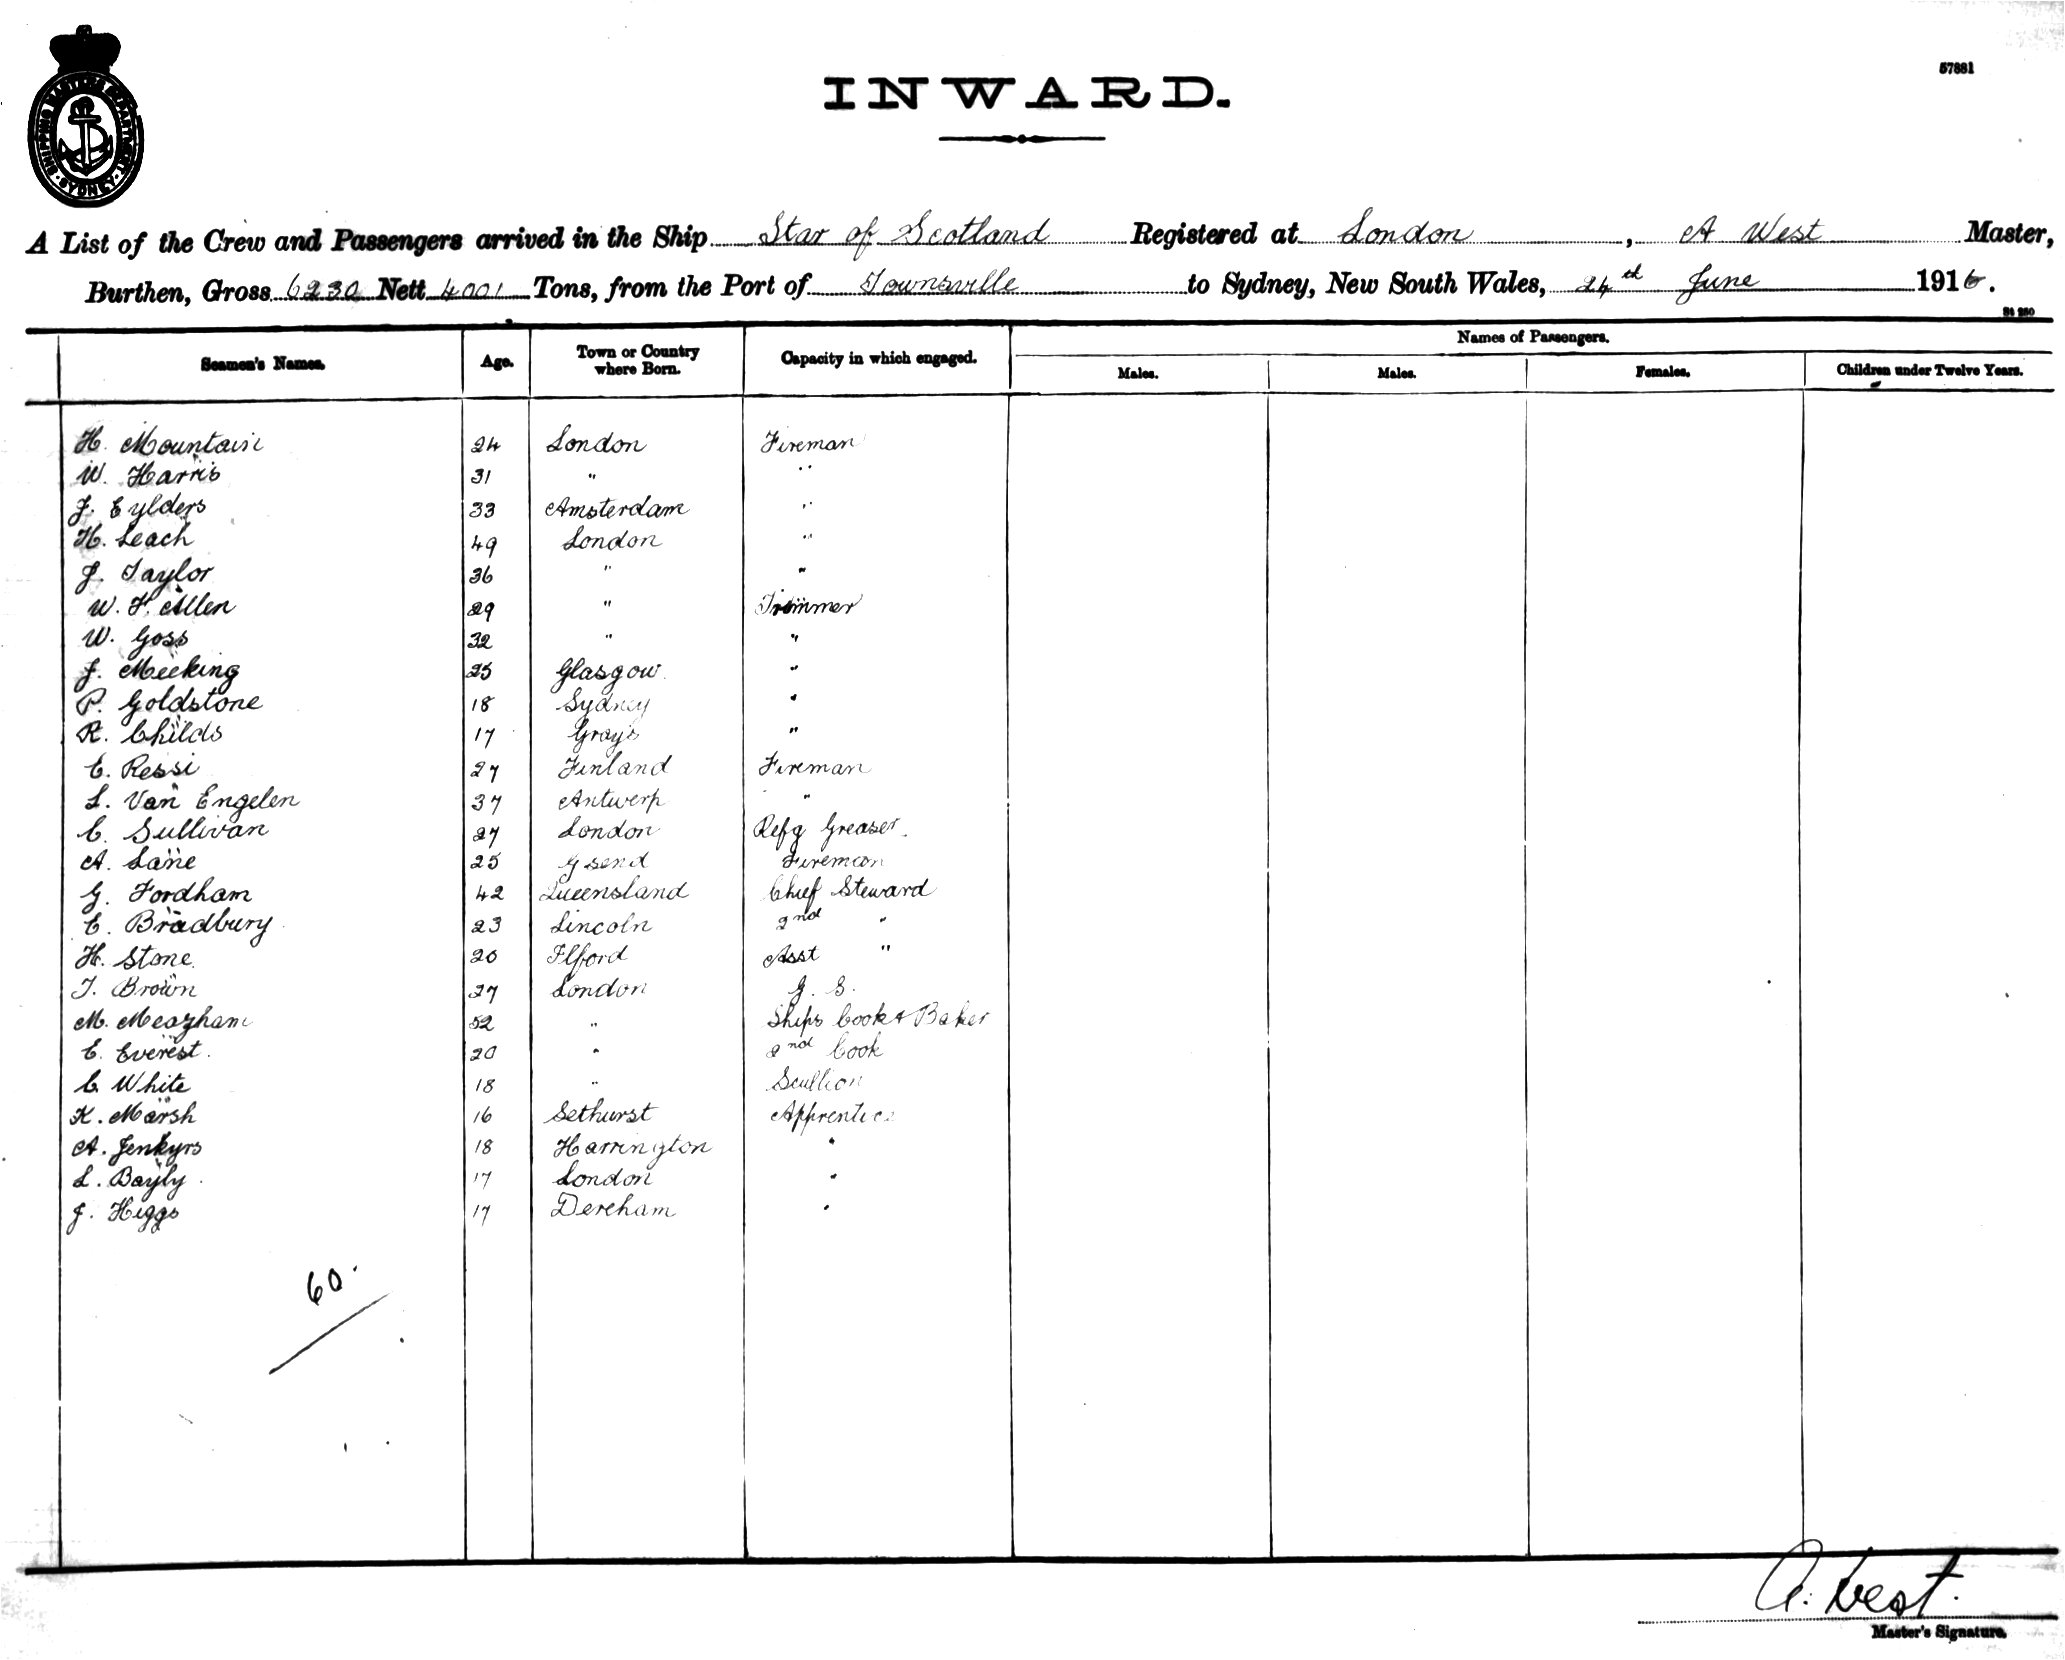 57881
SHIPPING MASTERS DEPARTMENT · SYDNEY ·
INWARD.
A List of the Crew and Passengers arrived in the Ship Star of Scotland Registered at London, A West Master,
Burthen, Gross 6230 Nett 4001 Tons, from the Port of Townsville to Sydney, New South Wales, 24th June 1916.
St 250
Seamen's Names. Age. Town or Country where Born. Capacity in which engaged. Names of Passengers.
Males. Males. Females. Children under Twelve Years.
H. Mountain 24 London Fireman
W. Harris 31 " "
J. Eylders 33 Amsterdam "
H. Leach 49 London "
J. Taylor 36 " "
W. F. Allen 29 " Trimmer
W. Goss 32 " "
J. Meeking 25 Glasgow "
P. Goldstone 18 Sydney "
R. Childs 17 Grays "
E. Ressi 27 Finland Fireman
L. Van Engelen 37 Antwerp "
C. Sullivan 27 London Refg Greaser
A. Lane 25 Gsend Fireman
G. Fordham 42 Queensland Chief Steward
E. Bradbury 23 Lincoln 2nd "
H. Stone 20 Ilford Asst "
T. Brown 27 London G. S.
M. Meazham 52 " Ships Cook & Baker
E. Everest 20 " 2nd Cook
C. White 18 " Scullion
K. Marsh 16 Sethurst Apprentice
A. Jenkyrs 18 Harrington "
L. Bayly 17 London "
J. Higgs 17 Dereham "
60.
A. West.
Master's Signature.